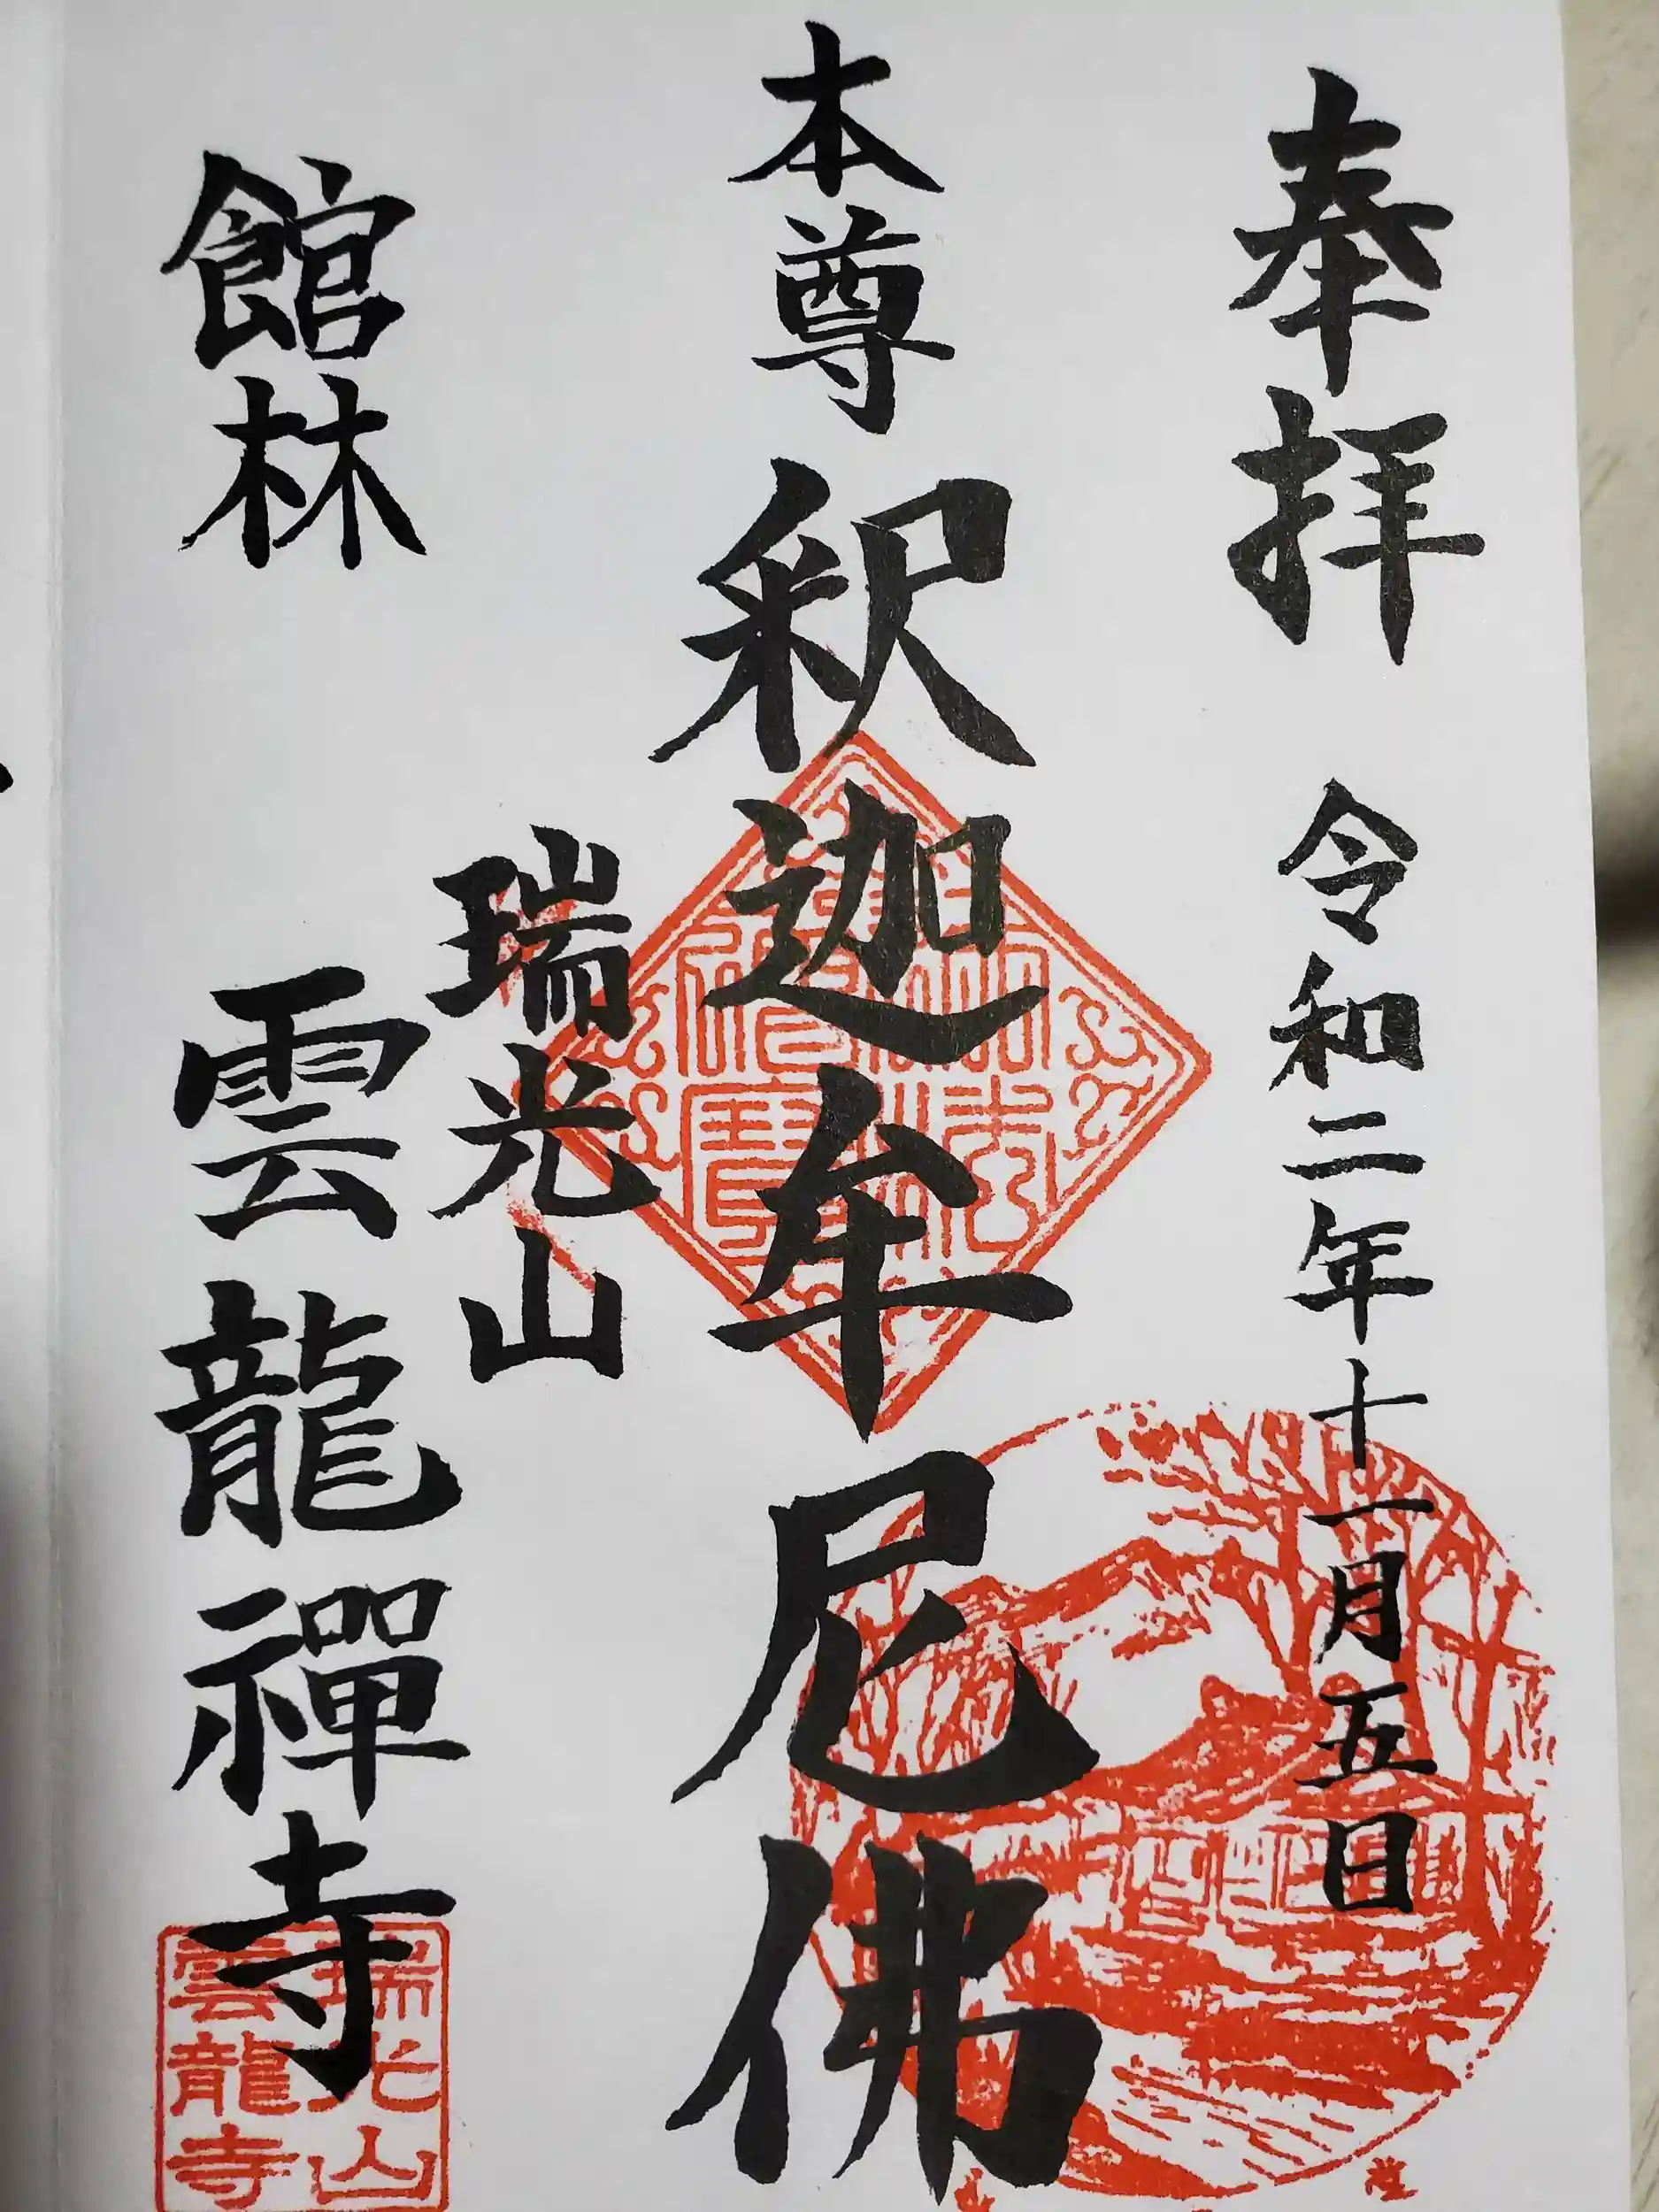 奉拝 令和二年十一月五日
本尊 釈迦牟尼佛
瑞光山
館林 雲龍禪寺
瑞光山
雲龍寺